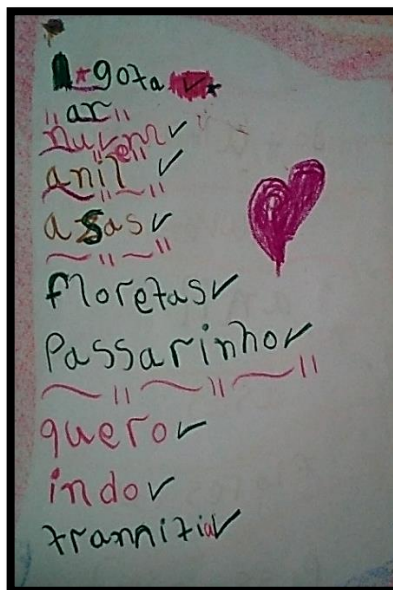 gota
ar
nuvem
anil
asas
floretas
Passarinho
quero
indo